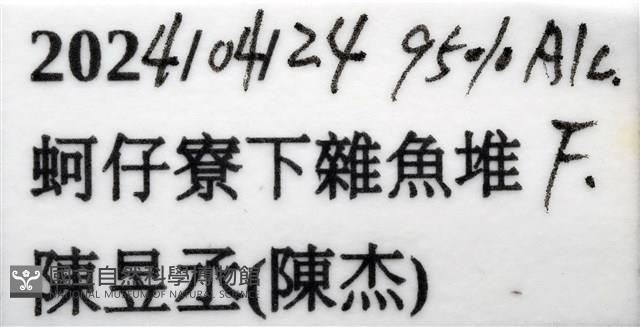 2024/04/24 95% Alc.
蚵仔寮下雜魚堆 F.
陳昱丞(陳杰)
國立自然科學博物館
NATIONAL MUSEUM OF NATURAL SCIENCE